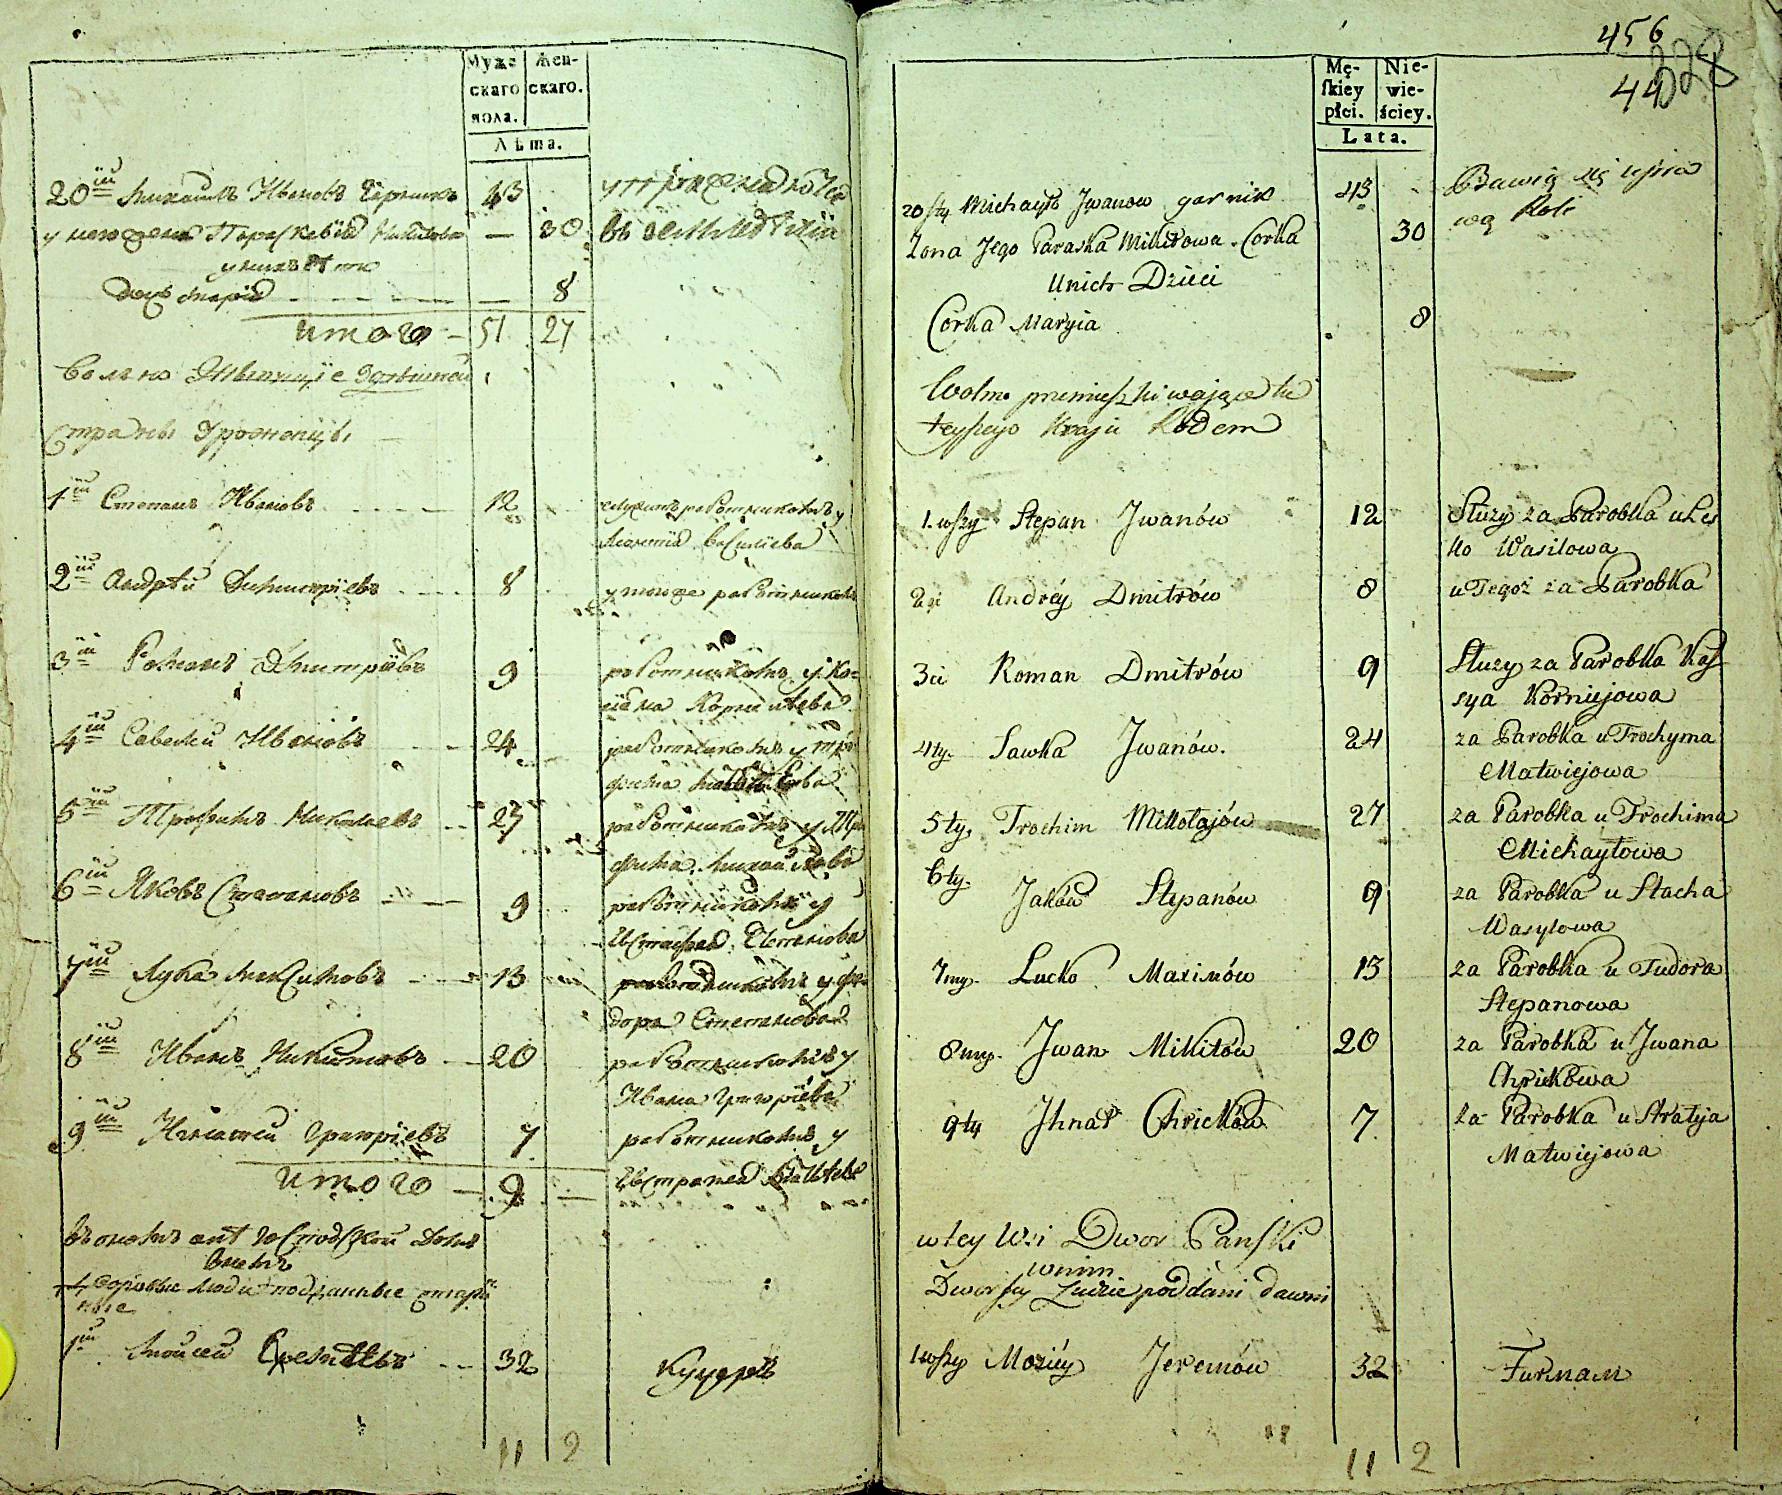 Муже
скаго
пола.
Жен-
скаго.
Лѣта.
20й Михаилъ Ивановъ 43
у него жена Параскевія Никитова — 30
у нихъ дѣти
дочь Марія — 8
итого — 51 27
вольно живущіе здѣшней
страны урожен̃цы
1й Степанъ Ивановъ 12 служитъ работникомъ у
Василіева
2й Андрѣй Димитріевъ 8 у тогоже работникомъ
3й Романъ Дмитріевъ 9 работникомъ у Ка-
сіяна Корніѣева
4й Савелій Ивановъ 24 работникомъ у Тро-
фима
5й Трофимъ Николаевъ 27 работникомъ у Тро-
фима Михайлова
6й Яковъ Степановъ 9 работникомъ у
7й Лука Максимовъ 13 работникомъ у Фе-
дора Степанова
8й Иванъ Никитовъ 20 работникомъ у
Ивана Григоріева
9й Игнатій Григоріевъ 7 работникомъ у
итого — 9 —
въ ономъ селѣ господской домъ
внемъ
дворовые люди подданные стари
ные
1й Моисей Еремѣевъ 32 кучеръ
11 2
456
44
228
Mę-
ſkiey
płci.
Nie-
wie-
ściey.
Lata.
20sty Michayło Jwanow garnik 43 Bawią się upra
Żona Jego Paraska Mikitowa Corka 30 wą Roli
Unich Dzieci
Corka Maryia 8
Wolno przemieszkiwaiące tu
teyszego Kraju Rodem
1.wszy Stepan Jwanów 12 Służy za Parobka u Les
ko Wasilowa
2gi Andréy Dmitrów 8 u Tegoż za Parobka
3ci Roman Dmitrów 9 Służy za Parobka Kas
sya Korniejowa
4ty. Sawka Jwanów. 24 za Parobka u Trochyma
Matwiejowa
5ty. Trochim Mikołajów 27 za Parobka u Trochima
Michayłowa
6ty. Jaków Stepanów 9 za Parobka u Stacha
Wasylowa
7my. Lucko Maximów 13 za Parobka u Fudora
Stepanowa
8my. Jwan Mikitów 20 za Parobka u Jwana
Chrickowa
9ty Jhnat Chricków 7 za Parobka u Stratyja
Matwiejowa
w tey Wsi Dwor Panſki
wnim
Dworscy Ludzie poddani dawni
1wszy Moziéy Jeremów 32 Furman
11 2